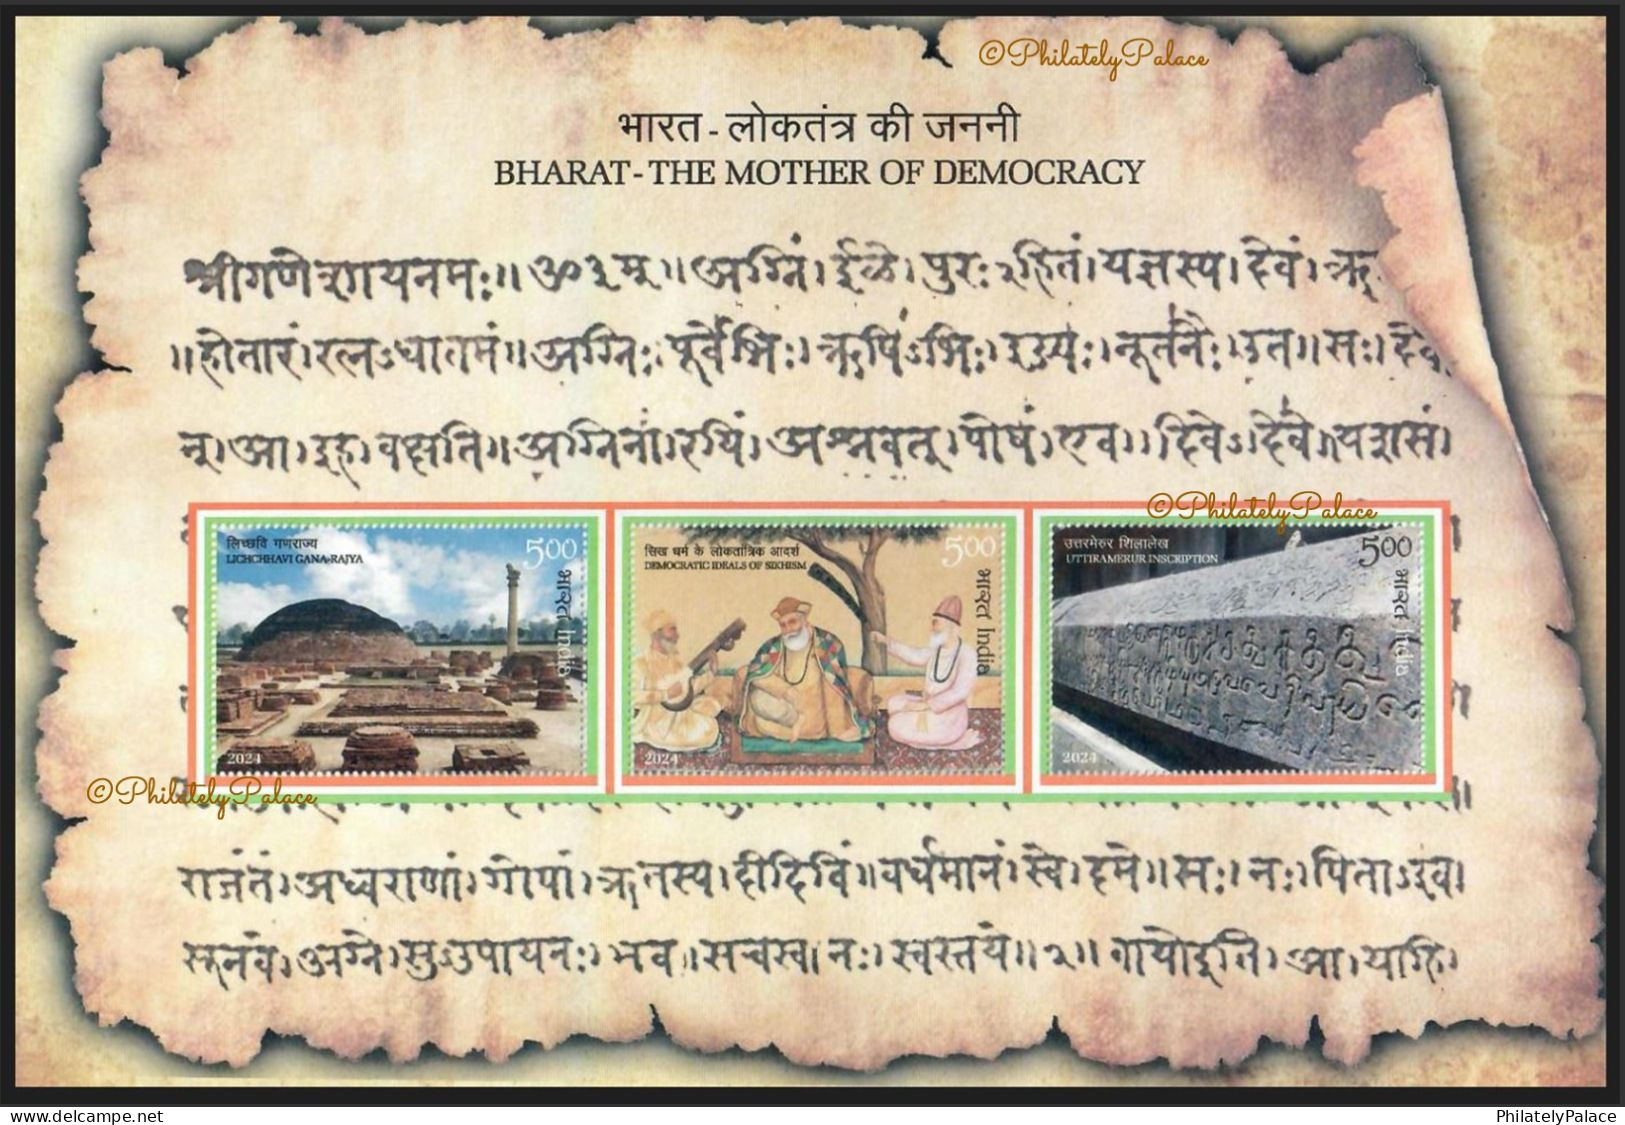 ©PhilatelyPalace
भारत - लोकतंत्र की जननी
BHARAT - THE MOTHER OF DEMOCRACY
॥ अग्निं । ईळे । पुरः २हितं । यज्ञस्य । देवं ।
॥ होतारं । रत्नऽधातमं ॥ अग्निः । पूर्वेभिः । ऋषिऽभिः । ईड्यः । नूतनैः । उत ॥ सः ।
आ । इह । वक्षति ॥ अग्निना । रयिं । अश्नवत् । पोषं । एव । दिवेऽदिवे । यशसं ।
©PhilatelyPalace
लिच्छवि गणराज्य
LICHCHHAVI GANA-RAJYA
500
भारत India
2024
सिख धर्म के लोकतांत्रिक आदर्श
DEMOCRATIC IDEALS OF SIKHISM
500
भारत India
2024
उत्तरमेरुर शिलालेख
UTTIRAMERUR INSCRIPTION
500
भारत India
2024
©PhilatelyPalace
राजंतं । अध्वराणां । गोपां । ऋतस्य । दीदिविं ॥ वर्धमानं । स्वे । दमे ॥ सः । नः । पिताऽइव ।
सूनवे । अग्ने । सुऽउपायनः । भव । सचस्व । नः । स्वस्तये ॥ २ ॥ वायो इति । आ । याहि ।
www.delcampe.net
PhilatelyPalace